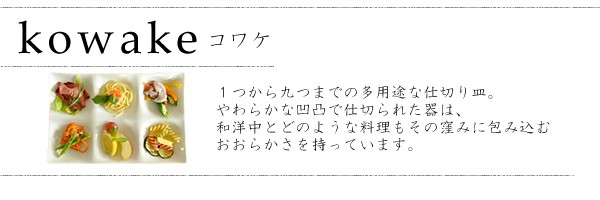 kowake コワケ
１つから九つまでの多用途な仕切り皿。
やわらかな凹凸で仕切られた器は、
和洋中とどのような料理もその窪みに包み込む
おおらかさを持っています。